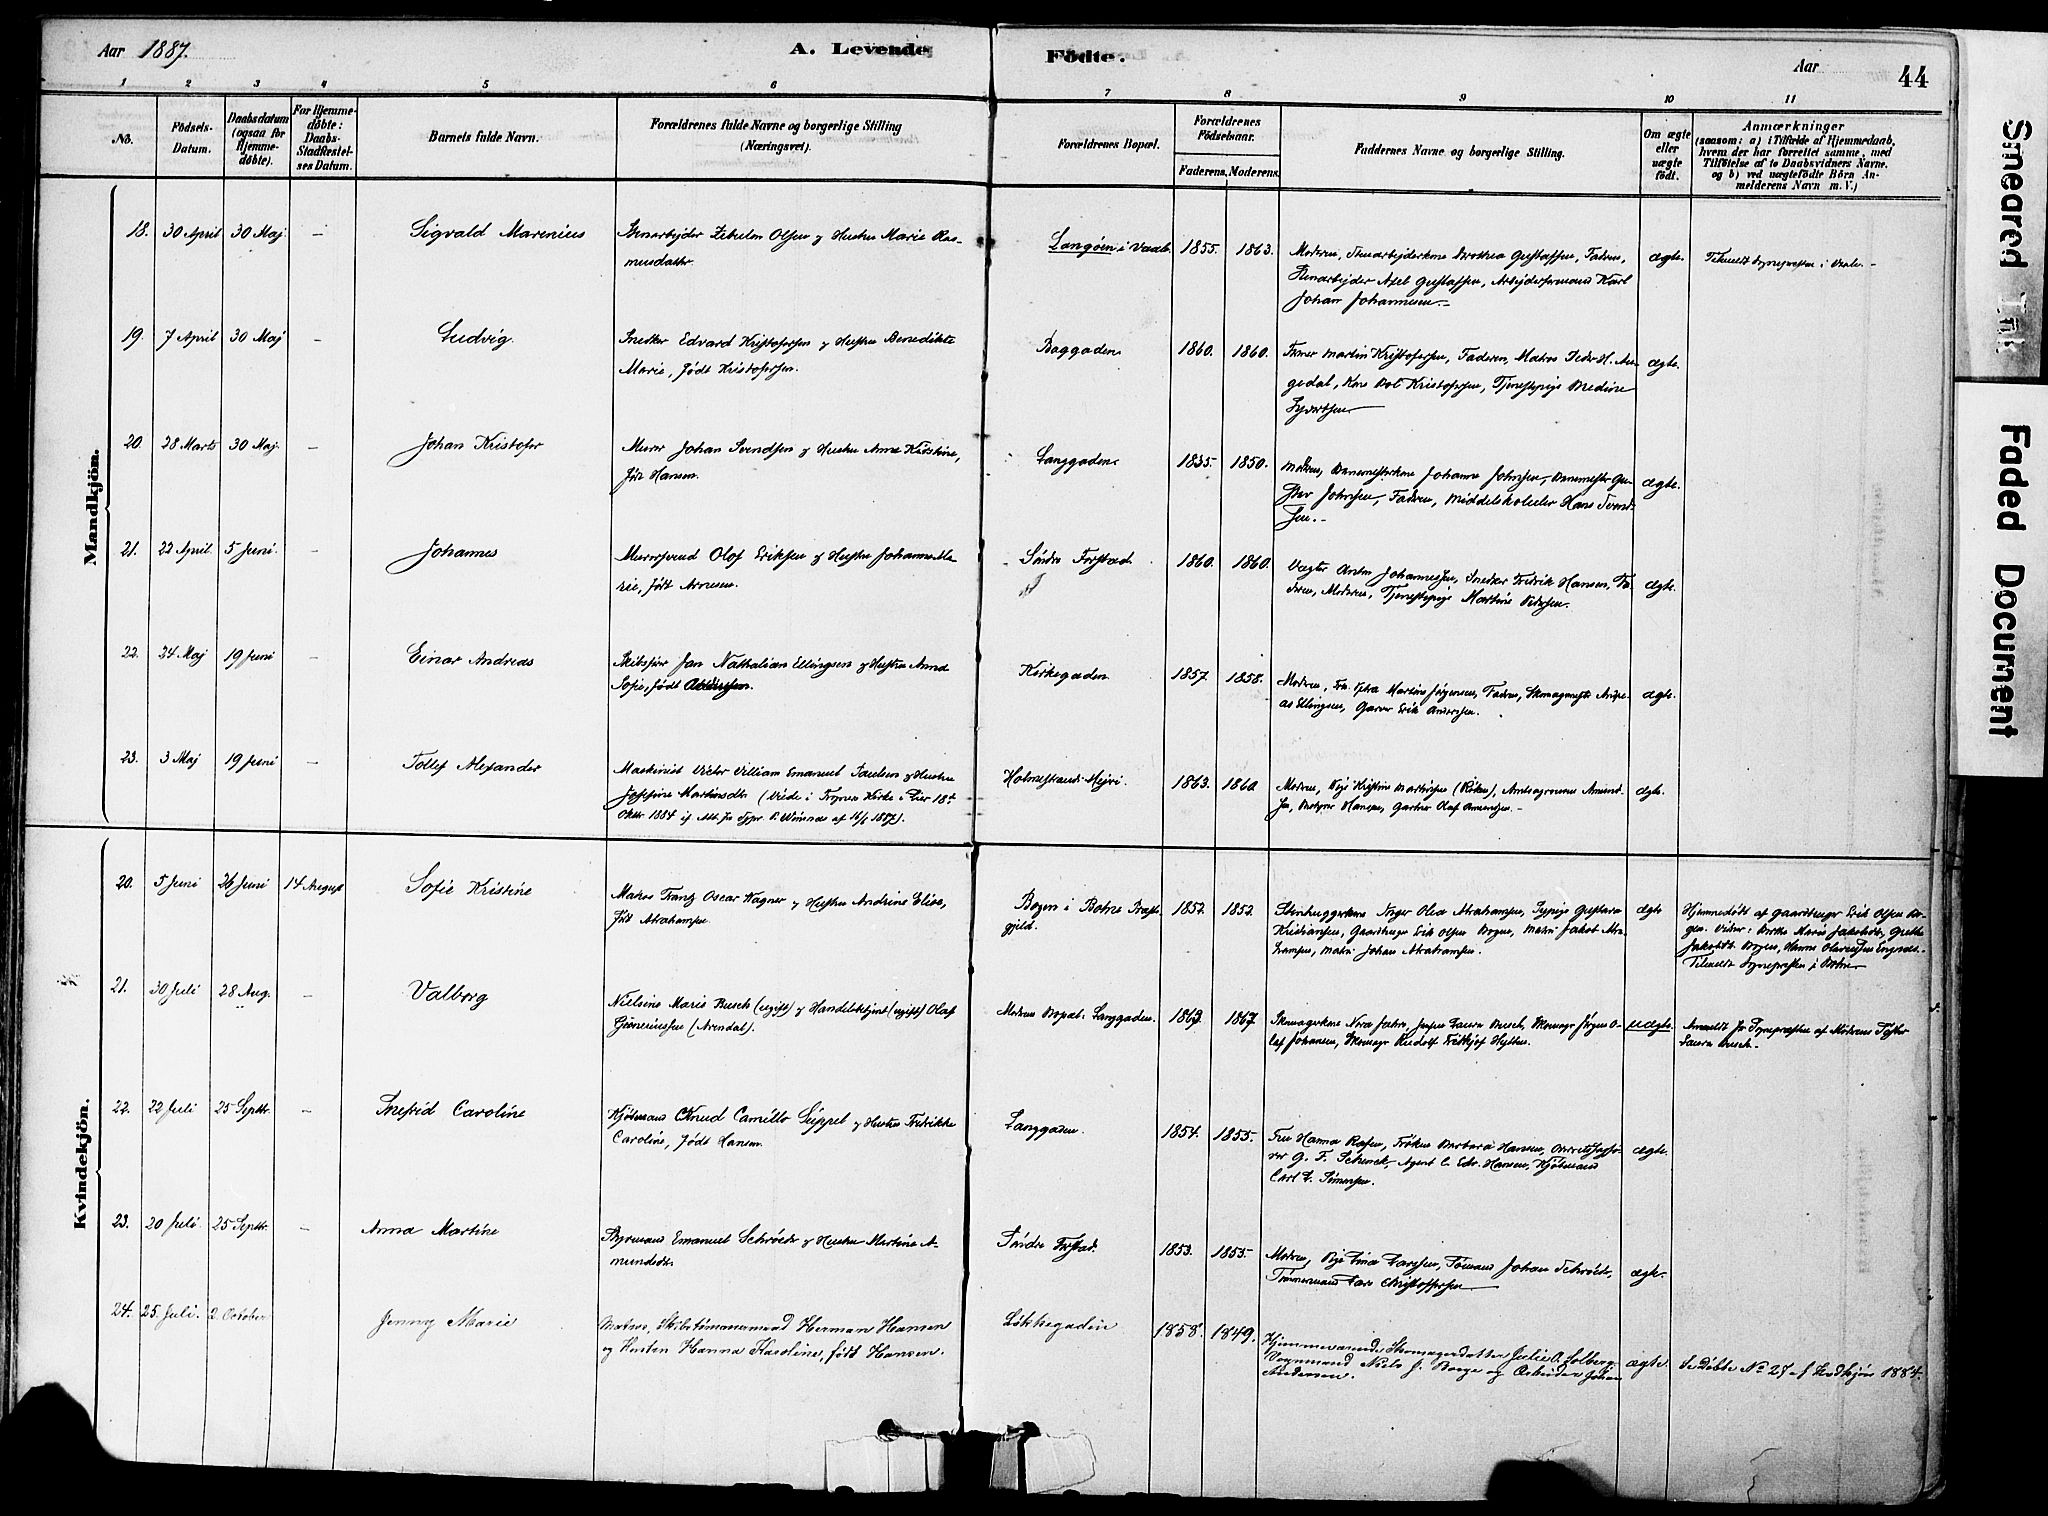 Aar 1887.
A. Levende Födte.
Aar
44
1 2 3 4 5 6 7 8 9 10 11
No.
Födsels-Datum.
Daabsdatum (ogsaa for Hjemme-döbte).
For Hjemme-döbte: Daabs-Stadfæstel-ses Datum.
Barnets fulde Navn.
Forældrenes fulde Navne og borgerlige Stilling (Næringsvei).
Forældrenes Bopæl.
Forældrenes Födselsaar.
Faderens. Moderens.
Faddernes Navne og borgerlige Stilling.
Om ægte eller uægte födt.
Anmærkninger
(saasom: a) i Tilfælde af Hjemmedaab,
hvem der har forrettet samme, med
Tilföielse af to Daabsvidners Navne,
og b) ved uægtefödte Börn An-
melderens Navn m. V.)
Mandkjön.
18. 30 April 30 Maj – Sigvald Marenius
Olsen og Hustru Marie Ras-
musdatter.
Langöen i Vaale
1855. 1863.
Moderen, Gustafsen, Faderen,
Stenarbejder Axel Gustafsen, Karl
Johan Johannesen.
ægte.
19. 7 April 30 Maj – Ludvig.
Snedker Edvard Kristofersen og Hustru Benedikte
Marie, født Kristofersen.
Baggaden
1860. 1860.
Martin Kristofersen, Faderen, Matros Peder H.
Kristofersen, Tjenestepige
ægte.
20. 28 Marts 30 Maj. – Johan Kristofer
Murer Johan Svendsen og Hustru Anne Kirstine,
født Hansen.
Langgaden
1835. 1850.
Moderen, Johanne Johnsen,
Johnsen, Faderen, Hans Svend-
sen.
ægte.
21. 22 April. 5 Juni. – Johannes
Murersvend Olof Eriksen og Hustru Johanne Ma-
rie, født Arnesen.
Söndre Forstad
1860. 1860.
Vægter Anton Johannesen, Snedker Fredrik Hansen, Fa-
deren, Moderen, Tjenestepige Martine Pedersen.
ægte.
22. 24 Maj 19 Juni – Einar Andreas
Jan Nathalian Ellingsen og Hustru Anna
Sofie, født
Kirkegaden
1857. 1858.
Moderen, Martine Jörgensen, Faderen, Skomagermester Andre-
as Ellingsen, Garver Erik Andersen.
ægte.
23. 3 Maj 19 Juni – Tollef Alexander
Maskinist Victor Villiam Emanuel Paulsen og Hustru
Josefine Martinsdtr. (Viede i Kirke i Lier 18de
Oktbr 1884
Holmestrand
1863. 1860
Moderen, Pige Kristine Martinsen
Hansen, Gartner Olaf Amundsen.
ægte.
Kvindekjön.
20. 5 Juni 26 Juni 14 August Sofie Kristine
Matros Frantz Oscar Wagner og Hustru Andrine Elise,
født Abrahamsen.
Bogen i Botne Præste-
gjeld.
1852. 1852.
Stenhuggerkone Inger Olea Abrahamsen, Gustava
Kristiansen, Gaardbruger Erik Olsen Bogen, Matros Jakob Abra-
hamsen, Matros Johan Abrahamsen.
ægte
Hjemmedøbt af Gaardbruger Erik Olsen Bo-
gen. Vidner: Berthe Marie Jakobsdt., Grethe
Jakobsdt. Bogen,
Tilmeldt Sognepræsten i Botne.
21. 30 Juli 28 Aug. – Valborg
Nielsine Marie Busch (ugift) og Handelsbetjent (ugift) Olaf
Gunneriussen (Arendal).
Moderens Bopæl: Langgaden.
1863. 1867.
Skomagerkone Laura Busch, Skomager Jörgen O-
laf Johansen, Skomager Rudolf Fridthjof
uægte.
Anmeldt for Sognepræsten af Moderens Søster
Laura Busch.
22. 22 Juli 25 Septbr. – Ingfrid Caroline
Kjöbmand Knud Camillo Süppel og Hustru Fredrikke
Caroline, født Hansen.
Langgaden.
1854. 1855.
Fru Hanna Frøken Barbara Hansen, Overretssagfö-
rer G. F. Schenck, Agent C. Edv. Hansen, Kjöbmand
Carl Simensen.
ægte.
23. 20 Juli. 25 Septbr. – Anna Martine
Styrmand Emanuel Schröder og Hustru Martine A-
mundsdtr.
Söndre Forstad.
1853. 1855.
Moderen, Pige Lina Larssen, Sömand Johan Schröder,
Tömmermand Lars Christoffersen
ægte.
24. 25. Juli. 2. October Jenny Marie
Matros, Skibstömmermand Herman Hansen
og Hustru Hanna Karoline, født Hansen.
Løkkegaden
1858. 1849.
Hjemmeværende Skomagerdatter Julie A. Solberg,
Vognmand Niels J. Berge og Arbeider Johan
Andersen.
ægte.
Se Døbte No 27 af Kvdkjön 1884.
Smeared Ink
Faded Document